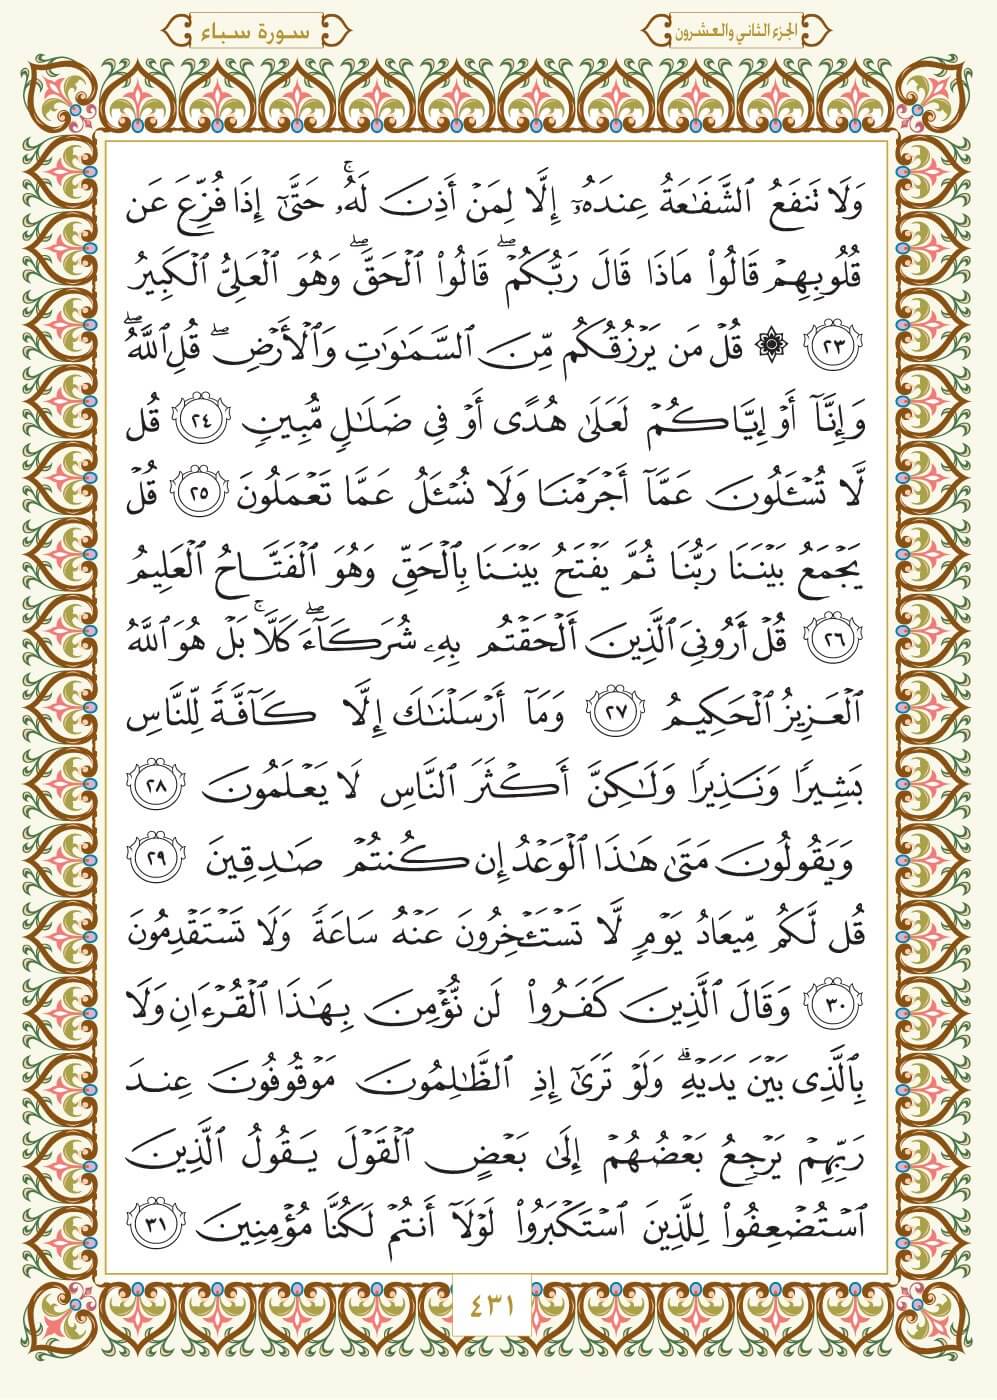 الجزء الثاني والعشرون
سورة سباء
وَلَا تَنفَعُ ٱلشَّفَٰعَةُ عِندَهُۥٓ إِلَّا لِمَنْ أَذِنَ لَهُۥۚ حَتَّىٰٓ إِذَا فُزِّعَ عَن
قُلُوبِهِمْ قَالُوا۟ مَاذَا قَالَ رَبُّكُمْۖ قَالُوا۟ ٱلْحَقَّۖ وَهُوَ ٱلْعَلِىُّ ٱلْكَبِيرُ
٢٣ ۞ قُلْ مَن يَرْزُقُكُم مِّنَ ٱلسَّمَٰوَٰتِ وَٱلْأَرْضِۖ قُلِ ٱللَّهُۖ
وَإِنَّآ أَوْ إِيَّاكُمْ لَعَلَىٰ هُدًى أَوْ فِى ضَلَٰلٍ مُّبِينٍ ٢٤ قُل
لَّا تُسْـَٔلُونَ عَمَّآ أَجْرَمْنَا وَلَا نُسْـَٔلُ عَمَّا تَعْمَلُونَ ٢٥ قُلْ
يَجْمَعُ بَيْنَنَا رَبُّنَا ثُمَّ يَفْتَحُ بَيْنَنَا بِٱلْحَقِّ وَهُوَ ٱلْفَتَّاحُ ٱلْعَلِيمُ
٢٦ قُلْ أَرُونِىَ ٱلَّذِينَ أَلْحَقْتُم بِهِۦ شُرَكَآءَۖ كَلَّاۚ بَلْ هُوَ ٱللَّهُ
ٱلْعَزِيزُ ٱلْحَكِيمُ ٢٧ وَمَآ أَرْسَلْنَٰكَ إِلَّا كَآفَّةً لِّلنَّاسِ
بَشِيرًا وَنَذِيرًا وَلَٰكِنَّ أَكْثَرَ ٱلنَّاسِ لَا يَعْلَمُونَ ٢٨
وَيَقُولُونَ مَتَىٰ هَٰذَا ٱلْوَعْدُ إِن كُنتُمْ صَٰدِقِينَ ٢٩
قُل لَّكُم مِّيعَادُ يَوْمٍ لَّا تَسْتَـْٔخِرُونَ عَنْهُ سَاعَةً وَلَا تَسْتَقْدِمُونَ
٣٠ وَقَالَ ٱلَّذِينَ كَفَرُوا۟ لَن نُّؤْمِنَ بِهَٰذَا ٱلْقُرْءَانِ وَلَا
بِٱلَّذِى بَيْنَ يَدَيْهِۗ وَلَوْ تَرَىٰٓ إِذِ ٱلظَّٰلِمُونَ مَوْقُوفُونَ عِندَ
رَبِّهِمْ يَرْجِعُ بَعْضُهُمْ إِلَىٰ بَعْضٍ ٱلْقَوْلَ يَقُولُ ٱلَّذِينَ
ٱسْتُضْعِفُوا۟ لِلَّذِينَ ٱسْتَكْبَرُوا۟ لَوْلَآ أَنتُمْ لَكُنَّا مُؤْمِنِينَ ٣١
٤٣١